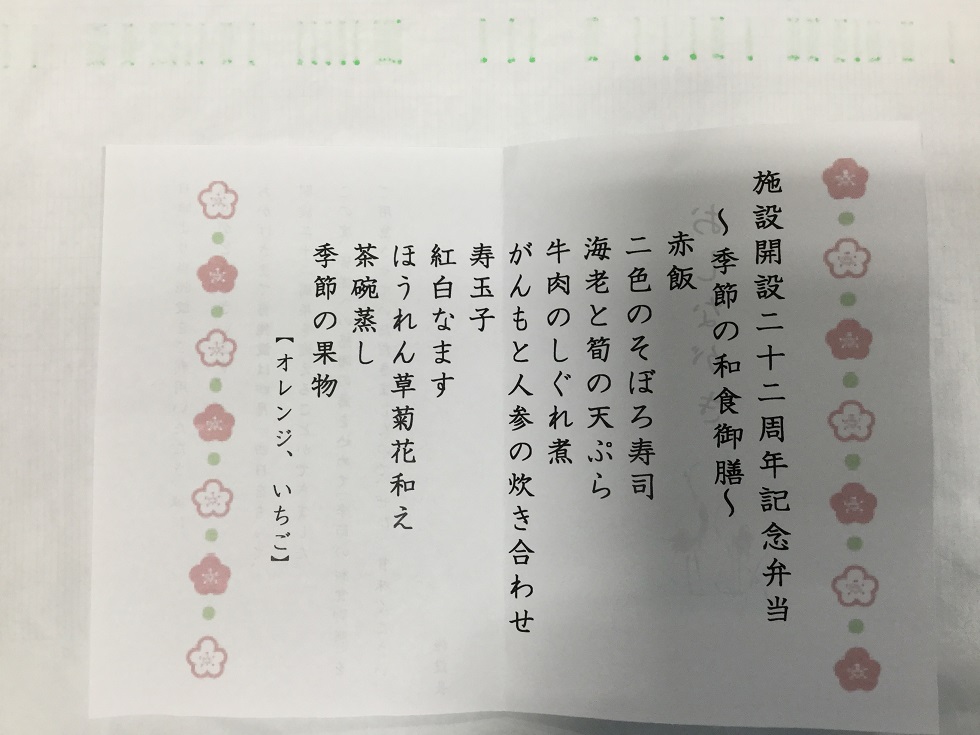 施設開設二十二周年記念弁当
～季節の和食御膳～
赤飯
二色のそぼろ寿司
海老と筍の天ぷら
牛肉のしぐれ煮
がんもと人参の炊き合わせ
寿玉子
紅白なます
ほうれん草菊花和え
茶碗蒸し
季節の果物
【オレンジ、いちご】
おしながき